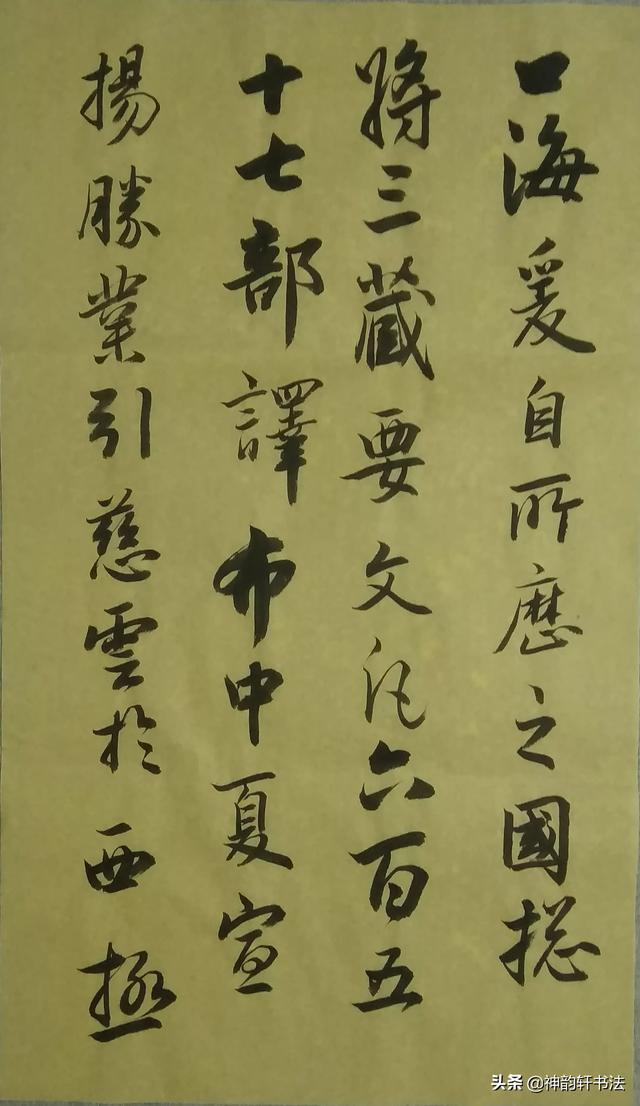 口海爰自所歷之國揔
將三藏要文凡六百五
十七部譯布中夏宣
揚勝業引慈雲於西極
头条 @神韵轩书法